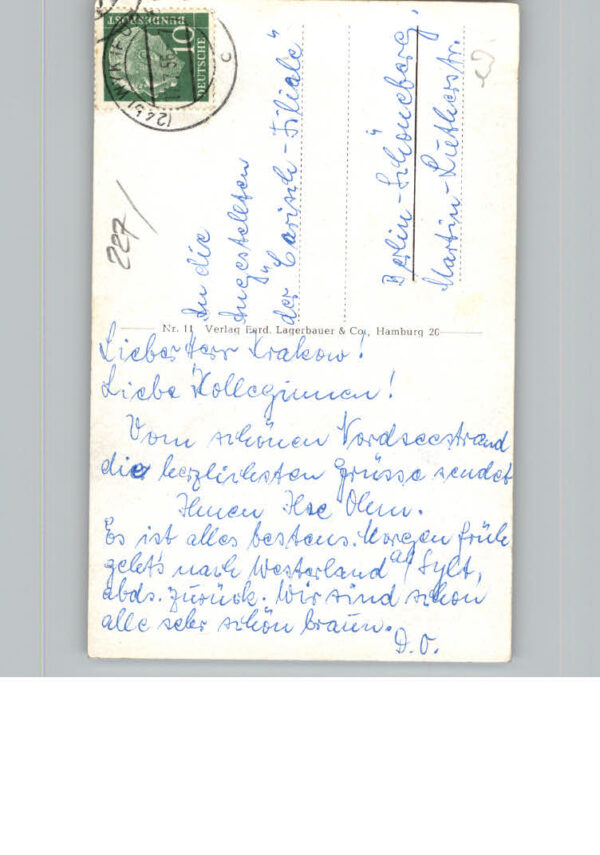 10
DEUTSCHE
BUNDESPOST
(24b) WYK (FÖHR)
c
227/
An die
Angestellten
der "Carisch-Filiale"
Berlin-Schöneberg,
Martin-Lutherstr.
Nr. 11 Verlag Erd. Lagerbauer & Co., Hamburg 26
Lieber Herr Krakow!
Liebe Kolleginnen!
Vom schönen Nordseestrand
die herzlichsten Grüsse sendet
Ihnen Ilse Ohm.
Es ist alles bestens. Morgen früh
geht's nach Westerland a/ Sylt,
abds. zurück. Wir sind schon
alle sehr schön braun.
D. O.